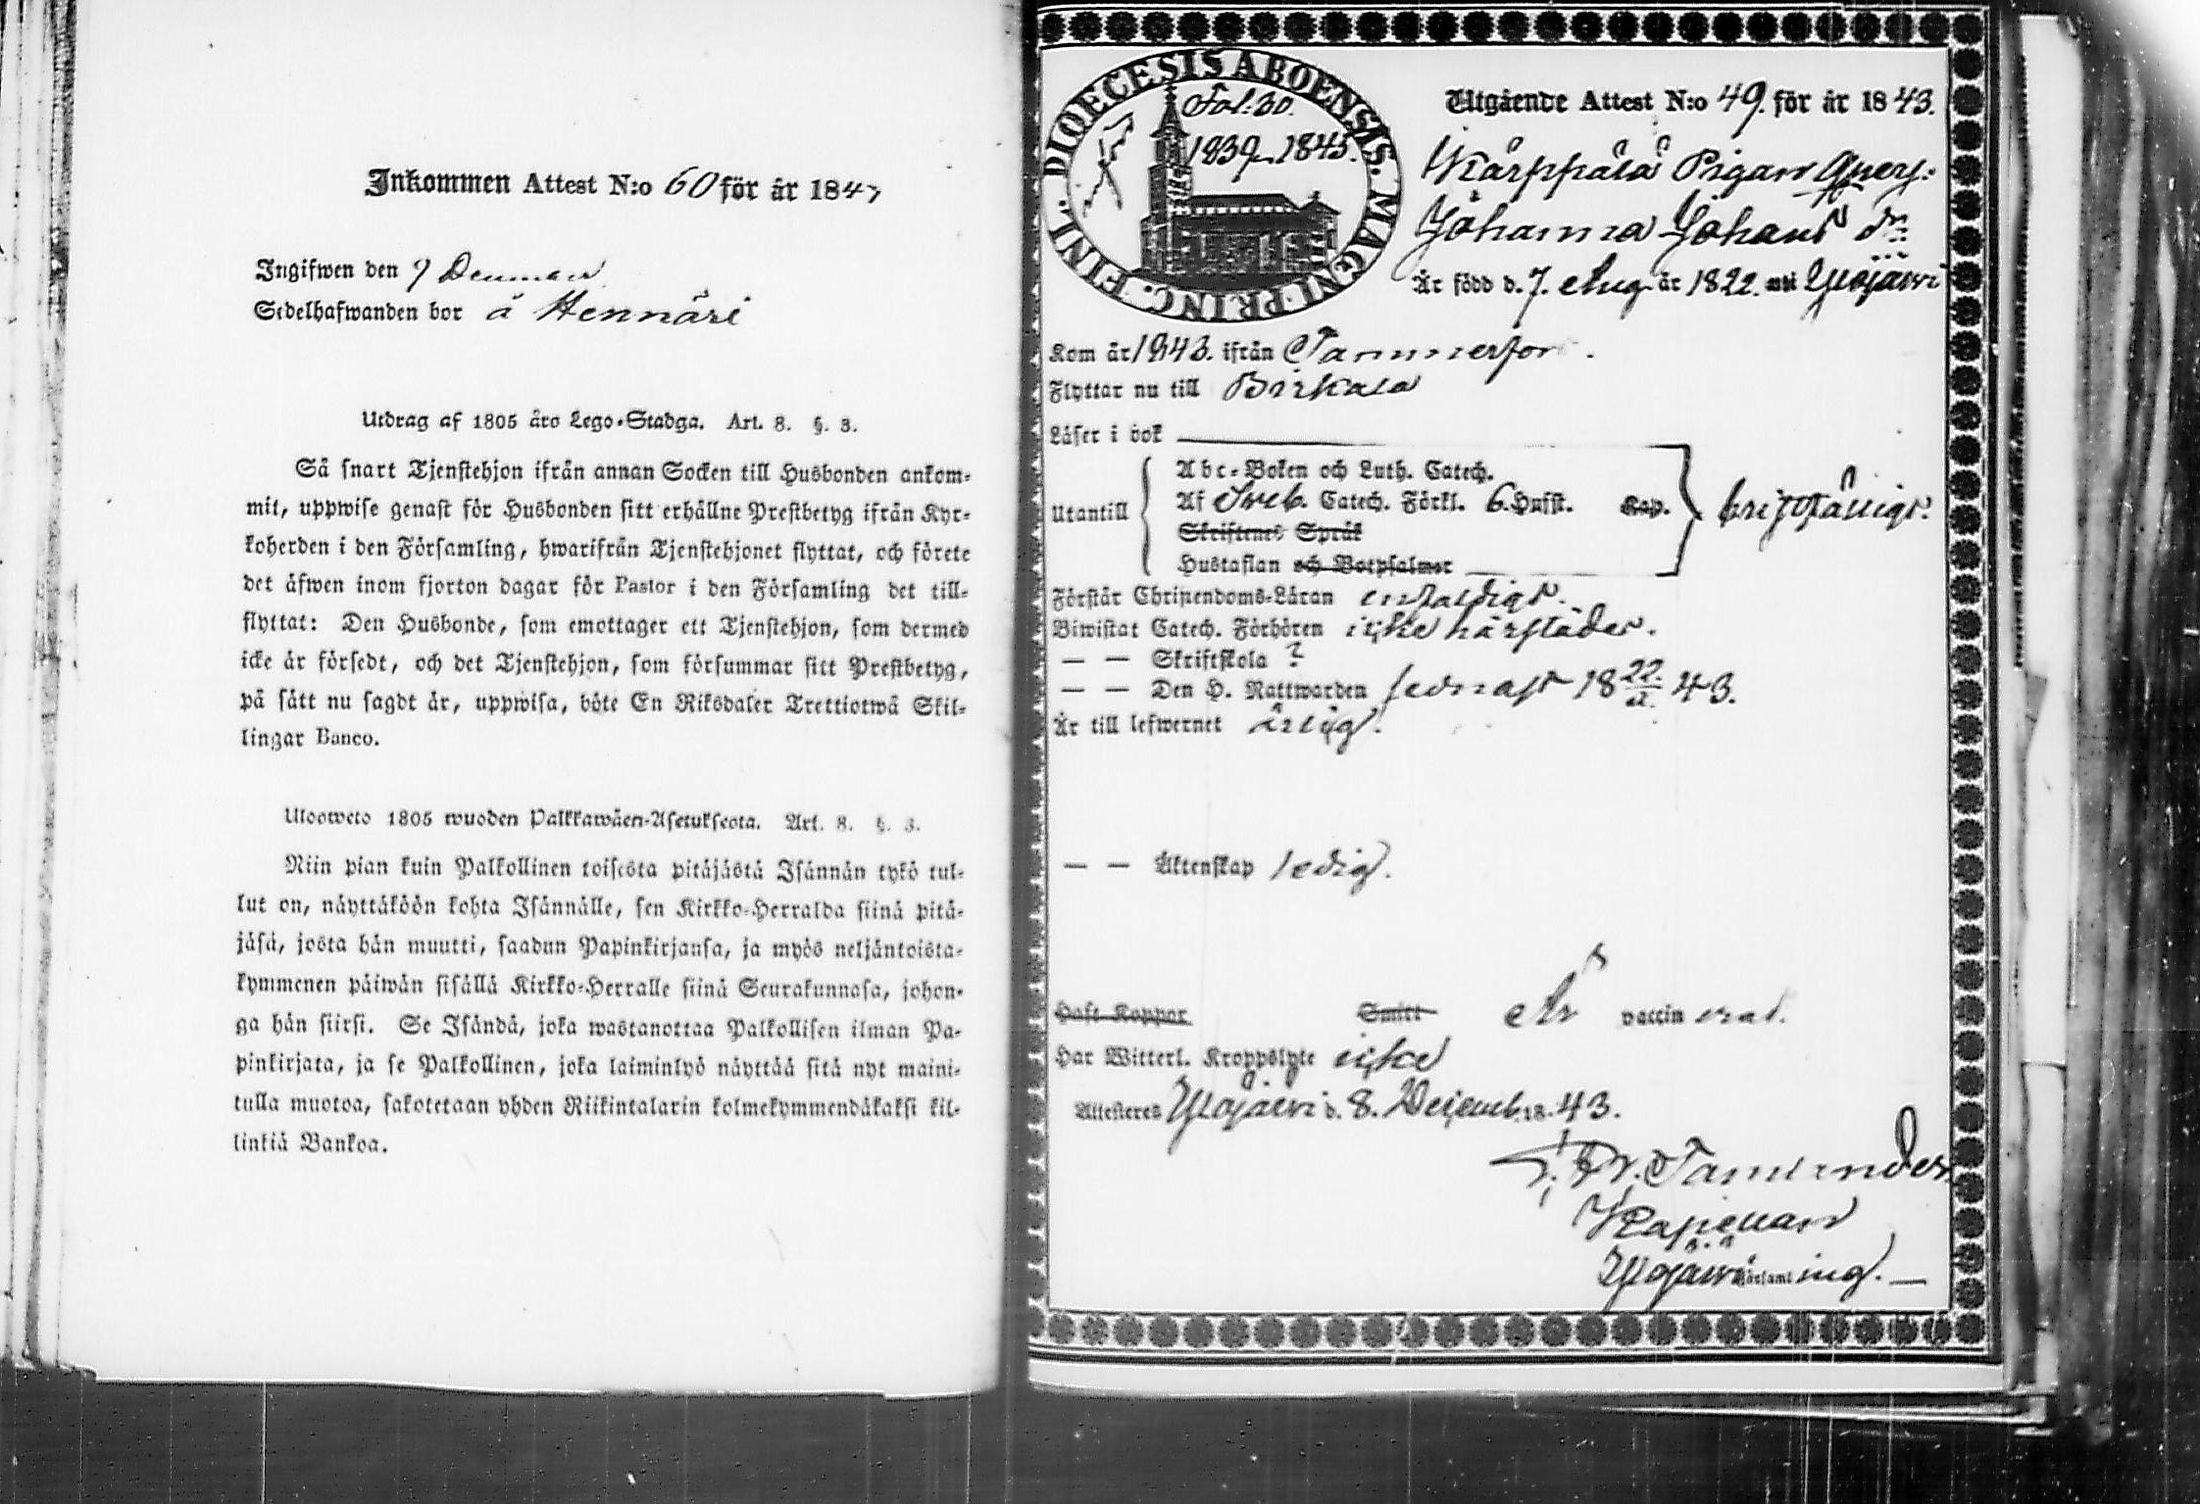 Inkommen Attest N:o 60 för år 184
Ingifwen den 9
Sedelhafwanden bor å Hennäri
Utdrag af 1805 års Lego-Stadga. Art. 8. §. 3.
Så snart Tjenstehjon ifrån annan Socken till Husbonden ankom-
mit, uppwise genast för Husbonden sitt erhållne Prestbetyg ifrån Kyr-
koherden i den Församling, hwarifrån Tjenstehjonet flyttat, och förete
det äfwen inom fjorton dagar för Pastor i den Församling det till-
flyttat: Den Husbonde, som emottager ett Tjenstehjon, som dermed
icke är försedt, och det Tjenstehjon, som försummar sitt Prestbetyg,
på sätt nu sagdt är, uppwisa, böte En Riksdaler Trettiotwå Skil-
lingar Banco.
Ulosweto 1805 wuoden Palkkawäen-Asetuksesta. Art. 8. §. 3.
Niin pian kuin Palkollinen toisesta pitäjästä Isännän tykö tul-
lut on, näyttäköön kohta Isännälle, sen Kirkko-Herralda siinä pitä-
jäsä, josta hän muutti, saadun Papinkirjansa, ja myös neljäntoista-
kymmenen päiwän sisällä Kirkko-Herralle siinä Seurakunnasa, johon-
ga hän siirsi. Se Isändä, joka wastanottaa Palkollisen ilman Pa-
pinkirjata, ja se Palkollinen, joka laiminlyö näyttää sitä nyt maini-
tulla muotoa, sakotetaan yhden Riikintalarin kolmekymmendäkaksi kil-
linkiä Bankoa.
DIOECESIS ABOENSIS. MAGNI PRINC. FINL.
Fol: 30.
1839-1845.
Utgående Attest N:o 49. för år 1843.
Kärppälä Pigan
Johanna Johans dr
Är född d. 7. Aug. år 1822. uti Ylöjärwi
Kom år 1843. ifrån Tammerfors.
Flyttar nu till Birkala
Läser i bok
Utantill
Abc-Boken och Luth. Catech.
Af Sveb. Catech. Förkl. 6. Hufst. Kap.
Skriftenes Språk
Hustaflan och Botpsalmer
bristfälligt.
Förstår Christendoms-Läran enfaldigt.
Biwistat Catech. Förhören icke härstädes.
— — Skriftskola ?
— — Den H. Nattwarden sednast 18 22/ 43.
Är till lefwernet ärlig.
— — Äktenskap ledig.
Haft Koppor Smitt Är vaccinerad.
Har Witterl. Kroppslyte icke
Attesteras Ylöjärwi d. 8. Decemb. 18 43.
Fr. Tamlander
Kapellan
Ylöjärwi Församling.